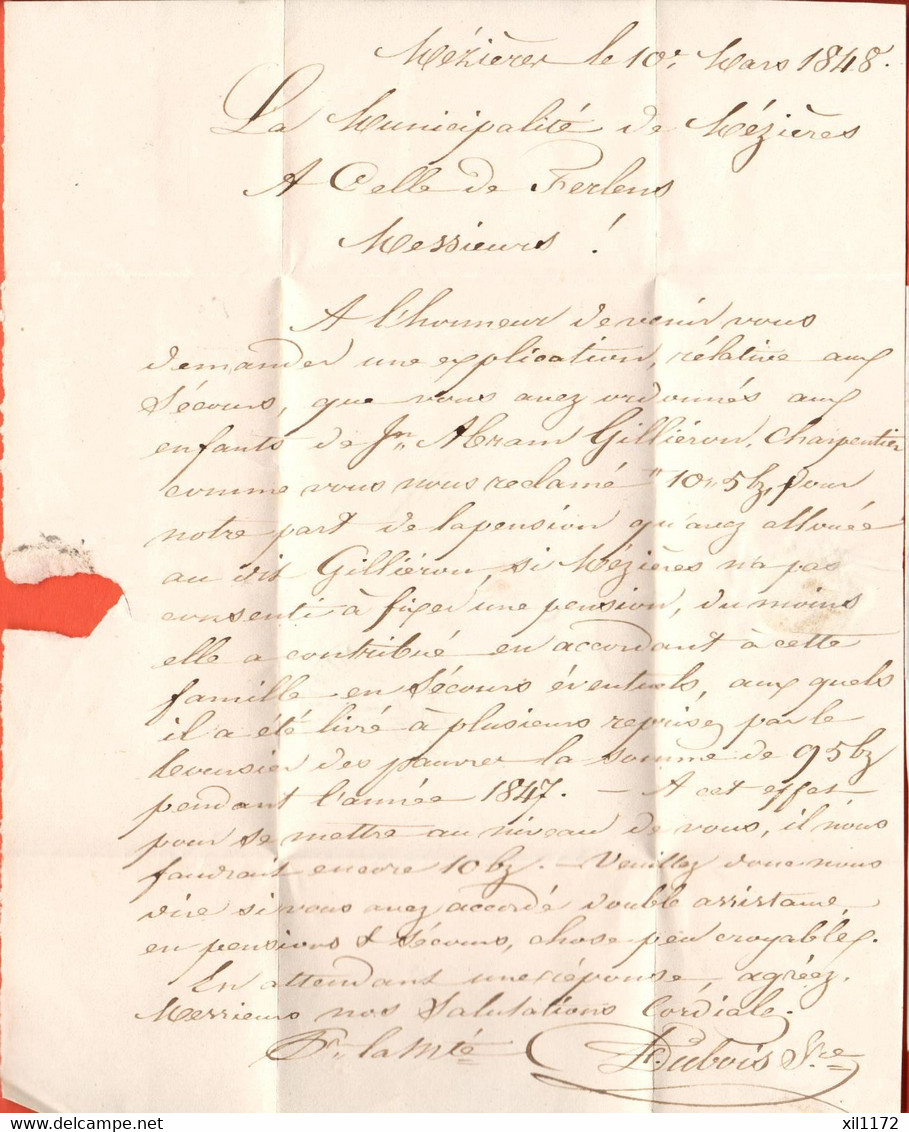 Mézières le 10e Mars 1848.
La Municipalité de Mézières
A Celle de Ferlens
Messieurs !
A l'honneur de venir vous
demander une explication, rélative aux
sécours, que vous avez ordonnés aux
enfants de Jn. Abram Gilliéron, charpentier
comme vous nous reclamé " 10,, 5 bz, pour
notre part de la pension qu'avez allouée
au dit Gilliéron, si Mézières n'a pas
consenti à fixer une pension, du moins
elle a contribué en accordant à cette
famille en sécours éventuels, aux quels
il a été livré à plusieurs reprises par le
boursier des pauvres la somme de 95 bz
pendant l'année 1847. — A cet effet
pour se mettre au niveau de vous, il nous
faudrait encore 10 bz. — Veuillez donc nous
dire si vous avez accordé double assistance,
en pensions & sécours, chose peu croyable.
En attendant une réponse, agréez,
Messieurs nos Salutations Cordiale.
Pr. la Mté
Dubois Sre
xil1172